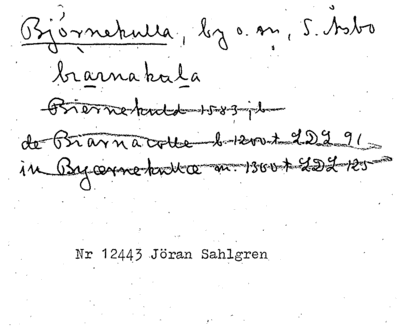 Björnekulla, by o. sn, S. Åsbo
biarnakula
Biernekuld 1583 jb
de Biarnacolle b. 1200 t LDL 91
in Byærnekullæ m. 1300 t LDL 125
Nr 12443 Jöran Sahlgren